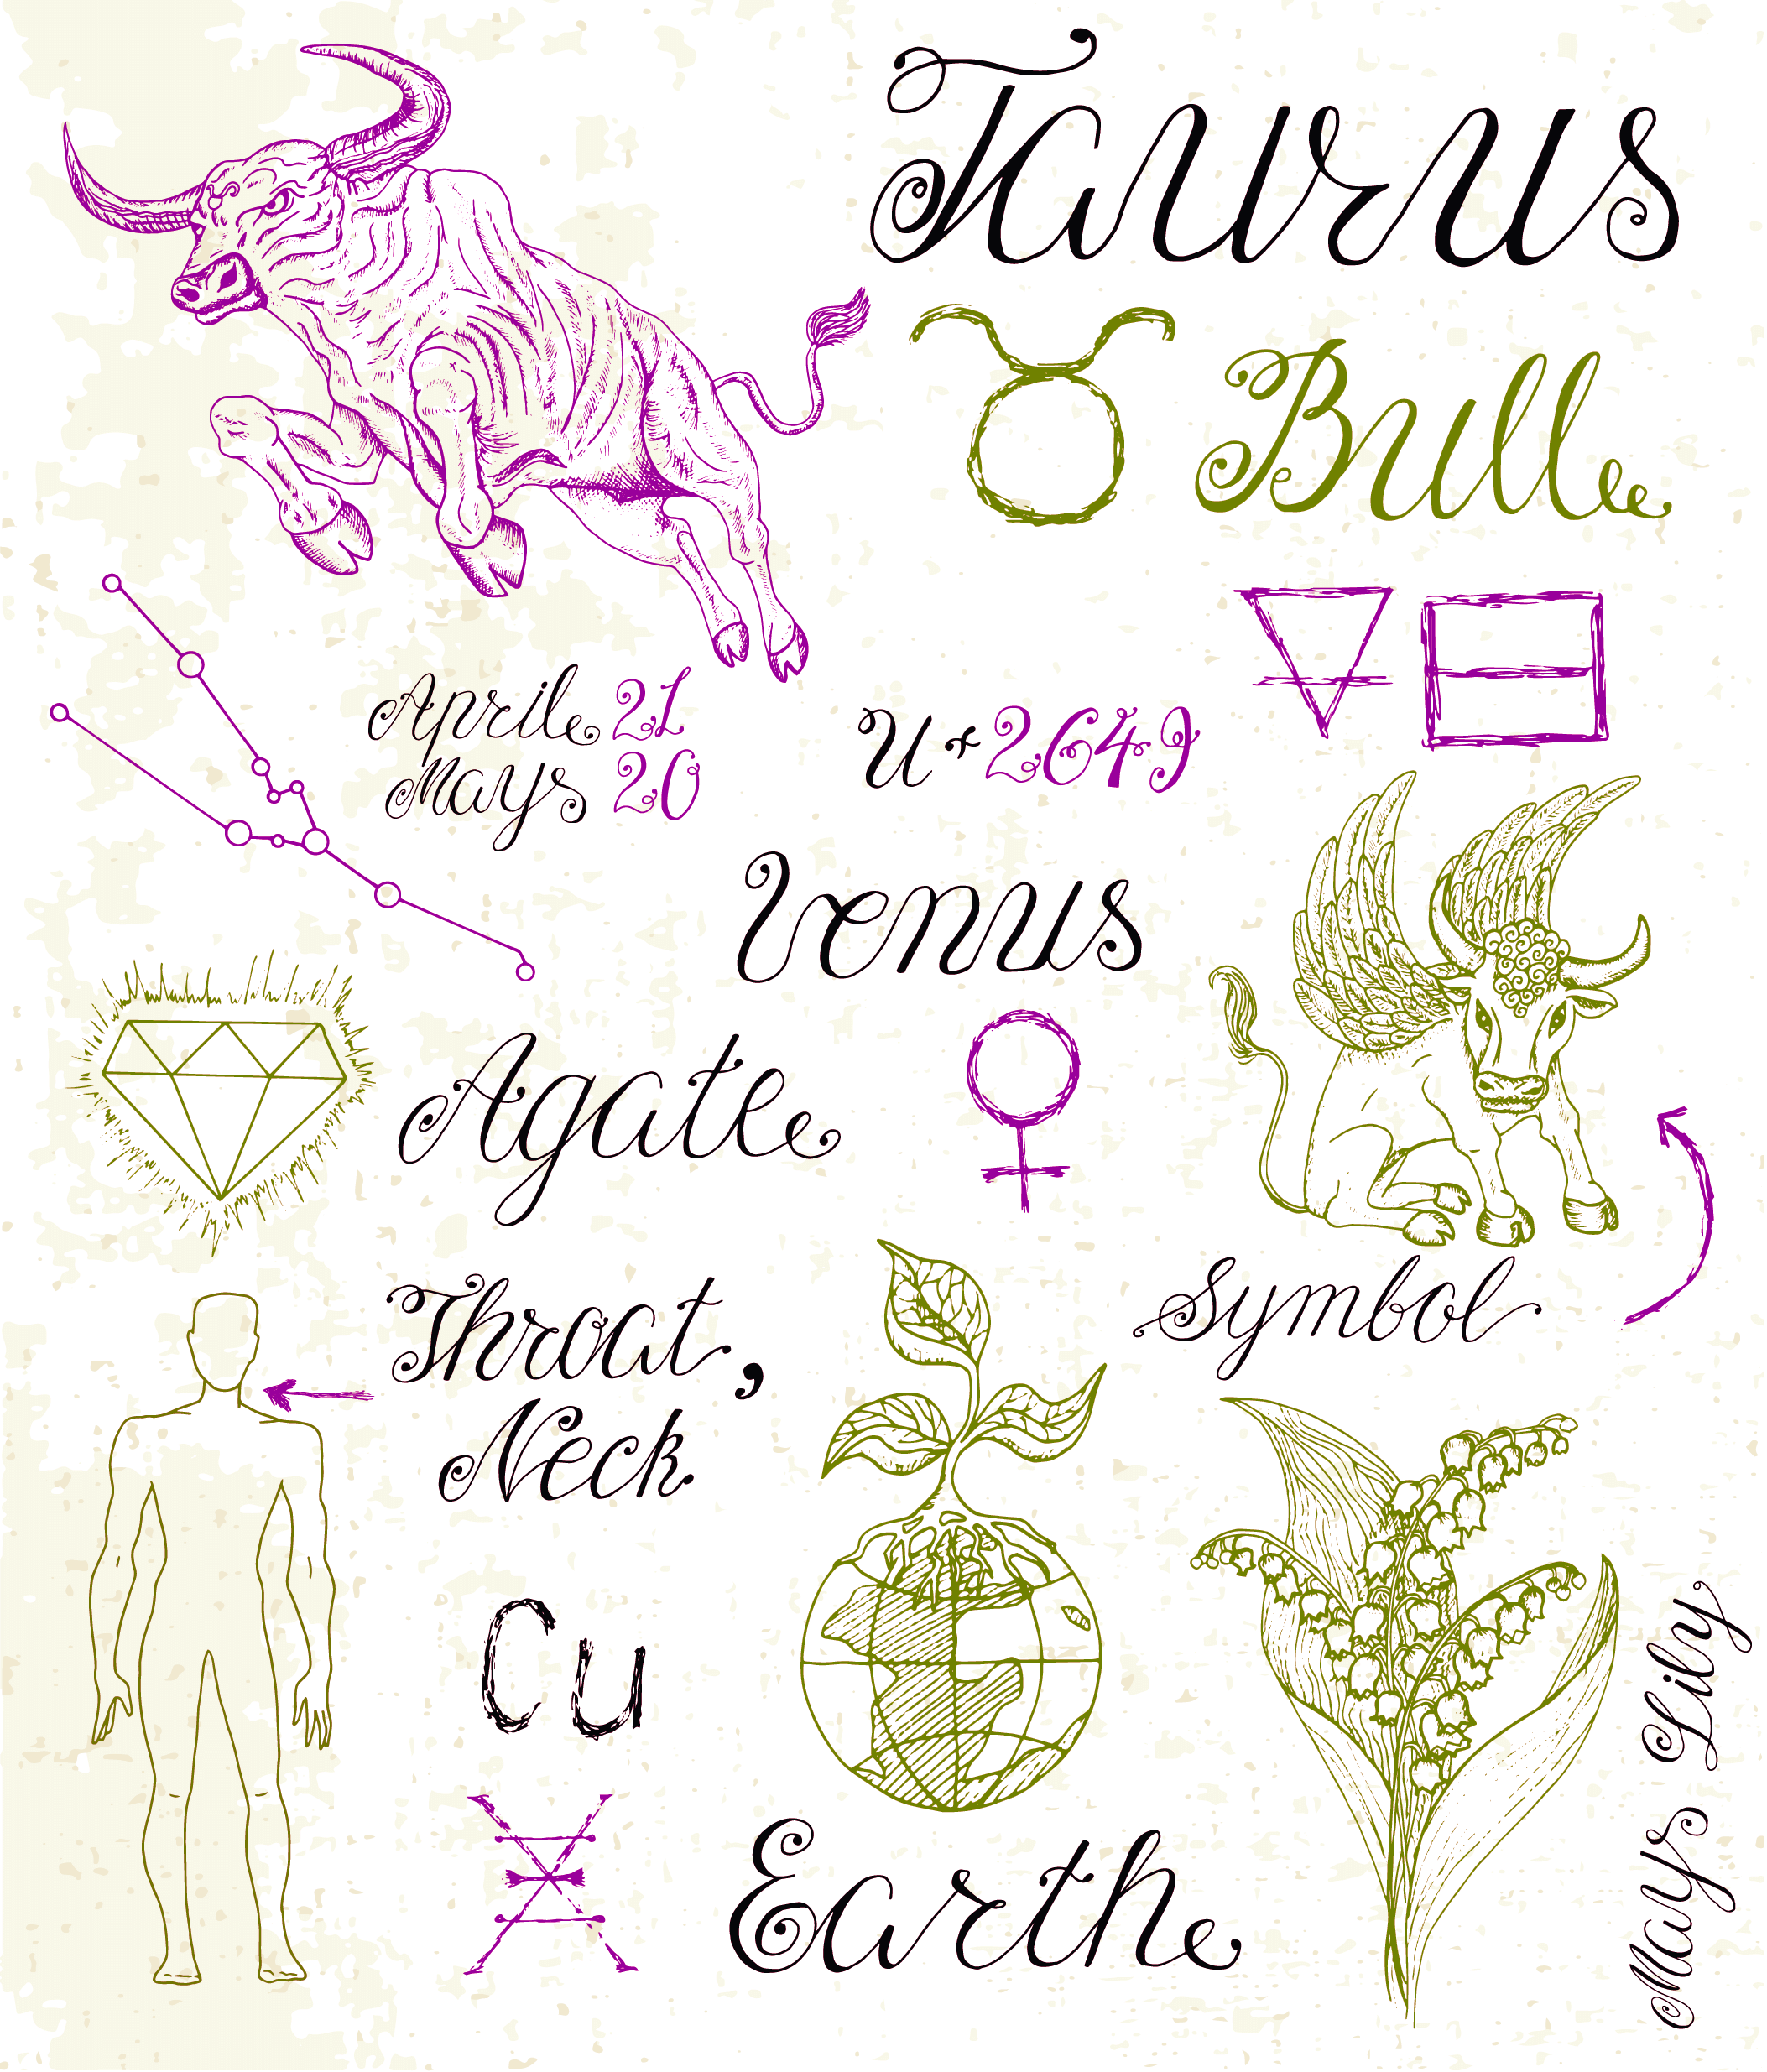 Taurus
Bull
April 21
Mays 20
U+2649
Venus
Agate
Symbol
Throat,
Neck
Cu
Earth
Mays Lily